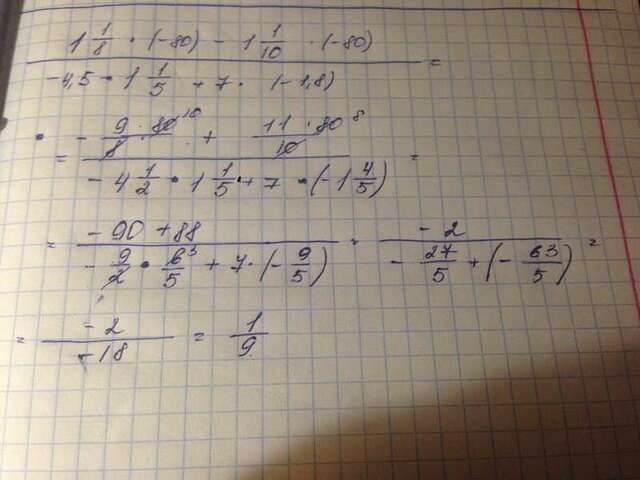 1 1/8 · (-80) - 1 1/10 · (-80)
-4,5 · 1 1/5 + 7 · (-1,8) =
= - 9·80¹⁰/8 + 11·80⁸/10
- 4 1/2 · 1 1/5 + 7 · (-1 4/5) =
= -90 + 88
- 9/2 · 6³/5 + 7 · (- 9/5) = -2
- 27/5 + (- 63/5) =
= -2
-18 = 1/9